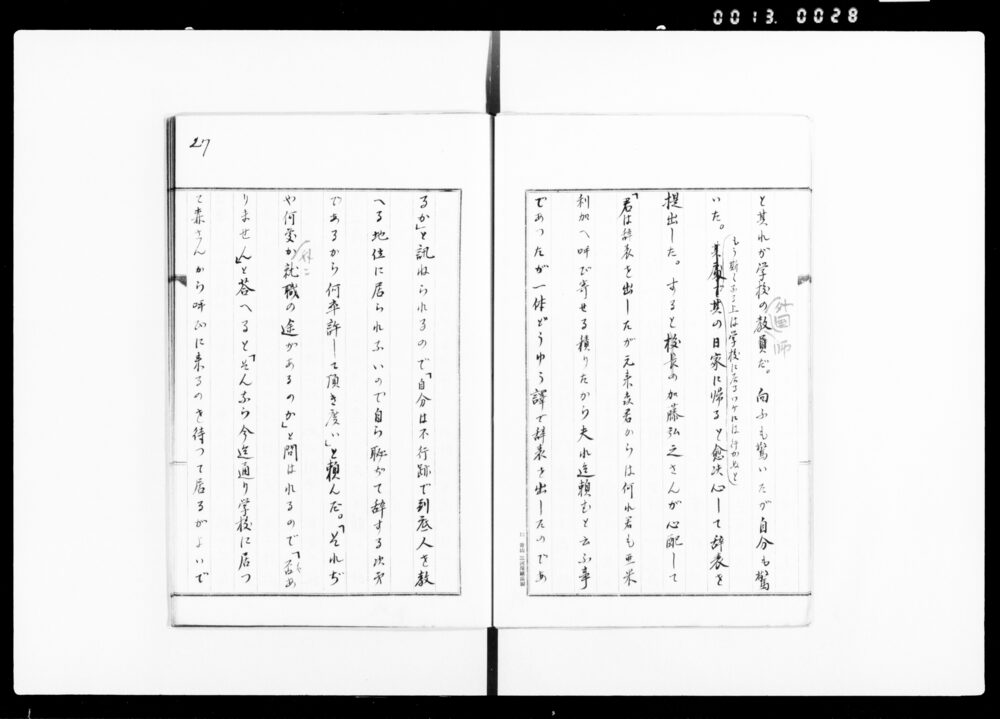 0013 0028
と其れが学校の教員だ。向ふも驚いたが自分も驚
外国
師
いた。其の日家に帰ると愈決心して辞表を
もう斯くなる上は学校に居るワケには行かぬと
提出した。すると校長の加藤弘之さんが心配して
「君は辞表を出したが元来森君からは何れ君も亜米
利加へ呼び寄せる積りだから夫れ迄頼むと云ふ事
であつたが一体どうゆう譯で辞表を出したのであ
27
るか」と訊ねられるので「自分は不行跡で到底人を教
へる地位に居られないので自ら恥ぢて辞する次第
であるから何卒許して頂き度い」と頼んだ。「それぢ
や何处か就職の途があるのか」と問はれるので「否あ
りません」と答へると「そんなら今迄通り学校に居つ
て森さんから呼びに来るのを待つて居るがよいで